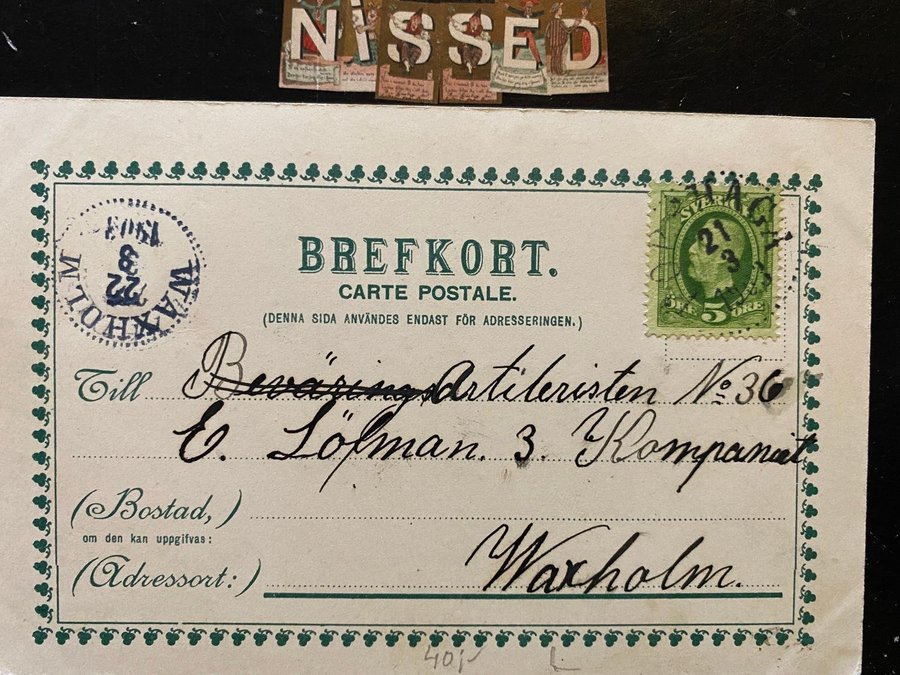 NiSSED
BREFKORT.
CARTE POSTALE.
(DENNA SIDA ANVÄNDES ENDAST FÖR ADRESSERINGEN.)
SVERIGE
21
3
5 ÖRE 5 ÖRE
WAXHOLM
22
3
1903
Till Bevärings Artileristen No 36
E. Löfman. 3. Kompaniet
(Bostad,)
om den kan uppgifvas:
(Adressort:) Waxholm.
40:-